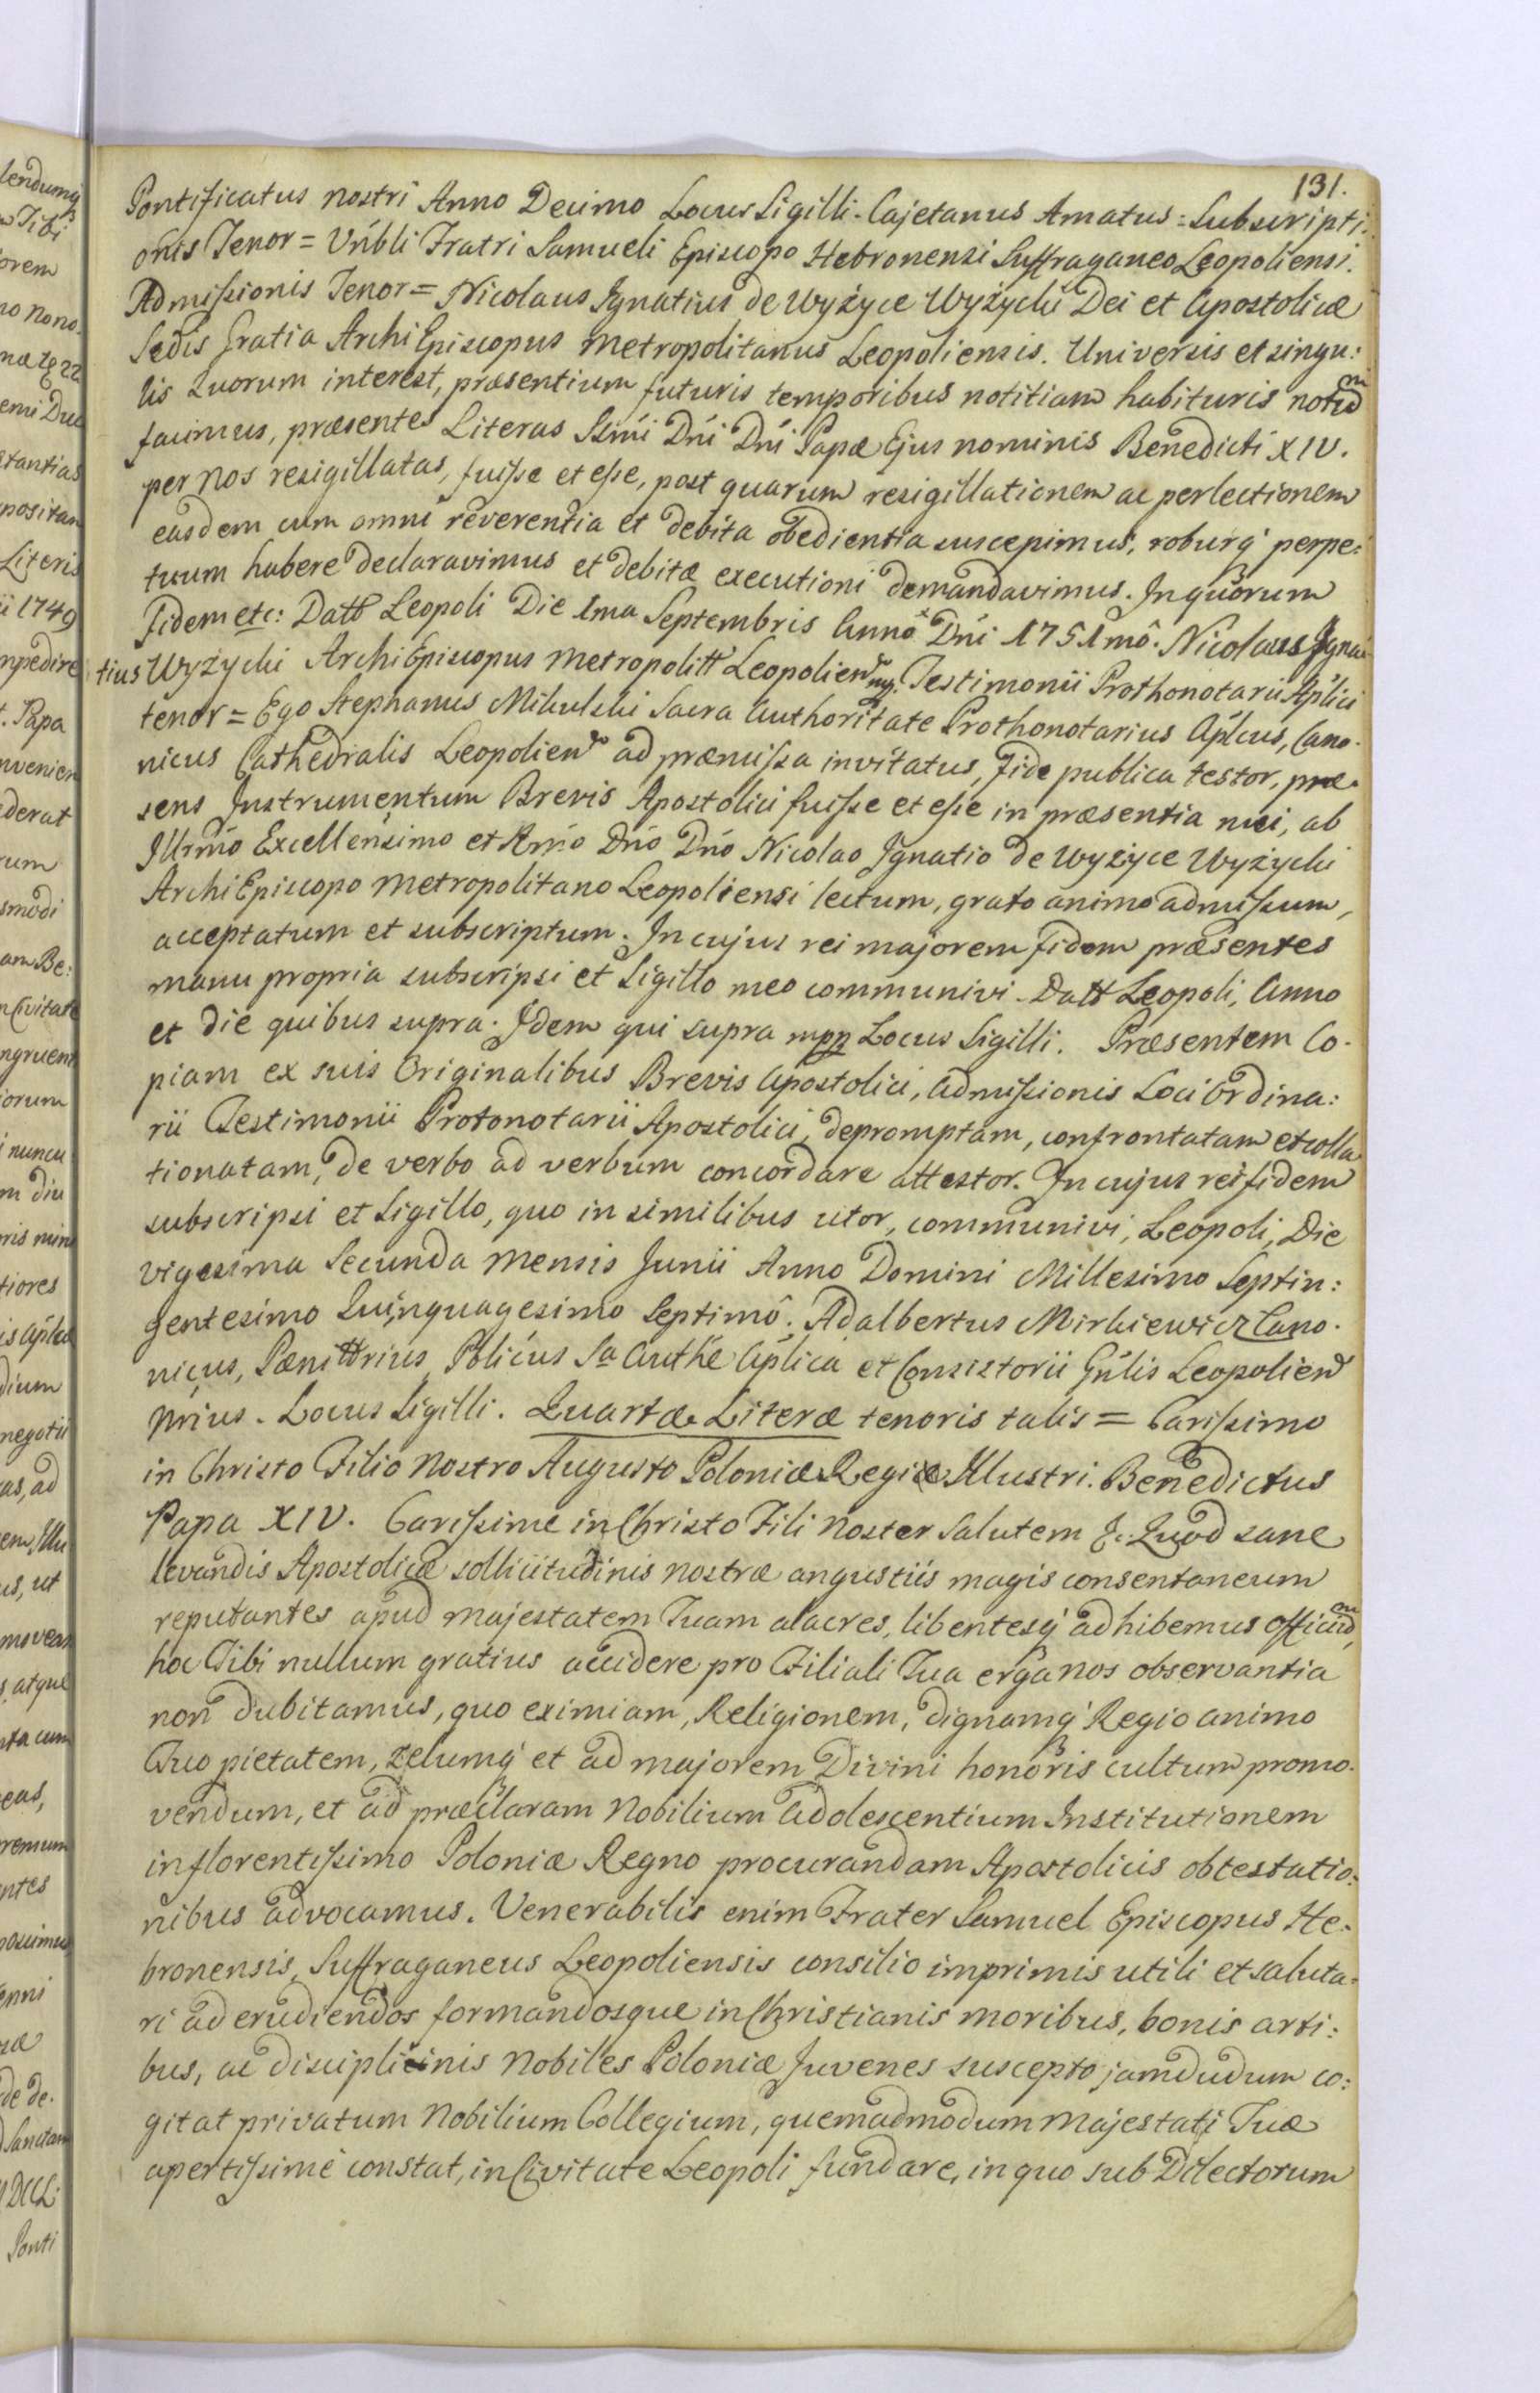 131.
Pontificatus nostri Anno Decimo Locus Sigilli. Cajetanus Amatus = Subscripti:
onis Tenor = Vńbli Fratri Samueli Episcopo Hebronensi Suffraganeo Leopoliensi.
Admissionis Tenor = Nicolaus Jgnatius de Wyżyce Wyżycki Dei et Apostolicæ
Sedis Gratia ArchiEpiscopus Metropolitanus Leopoliensis. Universis et singu:
lis Quorum interest, præsentium futuris temporibus notitiam habituris notum
facimus, præsentes Literas Ssmi Dńi Dńi Papæ Ejus nominis Benedicti XIV.
per Nos resigillatas, fuisse et esse, post quarum resigillationem ac perlectionem
easdem cum omni reverentia et debita obedientia suscepimus, roburq perpe:
tuum habere declaravimus et debitæ executioni demandavimus. Jn quorum
Fidem etc: Datt Leopoli Die 1ma Septembris Anno Dńi 1751mô. Nicolaus Jgna:
tius Wyżycki ArchiEpiscopus Metropolitt Leopolien mp. Testimonii Prothonotarii Aplici
tenor = Ego Stephanus Mikulski Sacra Authoritate Prothonotarius Aplcus, Cano.
nicus Cathedralis Leopolien ad præmissa invitatus, Fide publica testor, præ.
sens Jnstrumentum Brevis Apostolici fuisse et esse in præsentia mei, ab
Jllrmo Excellensimo et Rmo Dńo Dńo Nicolao Jgnatio de Wyżyce Wyżycki
ArchiEpiscopo Metropolitano Leopoliensi lectum, grato animo admissum,
acceptatum et subscriptum. Jn cujus rei majorem fidem præsentes
manu propria subscripsi et Sigillo meo communivi. Datt Leopoli, Anno
et Die quibus supra. Jdem qui supra mpp Locus Sigilli. Præsentem Co.
piam ex suis Originalibus Brevis Apostolici, Admissionis Loci Ordina:
rii Testimonii Protonotarii Apostolici, depromptam, confrontatam et colla
tionatam, de verbo ad verbum concordare attestor. Jn cujus rei fidem
subscripsi et Sigillo, quo in similibus utor, communivi, Leopoli, Die
vigesima Secunda Mensis Junii Anno Domini Millesimo Septin:
gentesimo Quinquagesimo Septimô. Adalbertus Mirkiewicz Cano.
nicus, Pænittrius, Policus Sa Authe Aplica et Consistorii Gńlis Leopolien
Nrius. Locus Sigilli. Quartæ Literæ tenoris talis = Carissimo
in Christo Filio Nostro Augusto Poloniæ Regi Jllustri. Benedictus
Papa XIV. Carissime in Christo Fili Noster Salutem &. Quod sane
levandis Apostolicæ sollicitudinis nostræ angustiis magis consentaneum
reputantes apud Majestatem Tuam alacres, libentesq adhibemus officium,
hoc Tibi nullum gratius accidere pro Filiali Tua erga nos observantia
non dubitamus, quo eximiam, Religionem, dignamq Regio animo
Tuo pietatem, zelumq et ad majorem Divini honoris cultum promo.
vendum, et ad præclaram Nobilium Adolescentium Jnstitutionem
in florentissimo Poloniæ Regno procurandam Apostolicis obtestatio:
nibus advocamus. Venerabilis enim Frater Samuel Episcopus He.
bronensis, Suffraganeus Leopoliensis consilio imprimis utili et saluta:
ri ad erudiendos formandosque in Christianis moribus, bonis arti:
bus, ac disciplinis Nobiles Poloniæ Juvenes suscepto jamdudum co:
gitat privatum Nobilium Collegium, quemadmodum Majestati Tuæ
apertissime constat, in Civitate Leopoli fundare, in quo sub Dilectorum